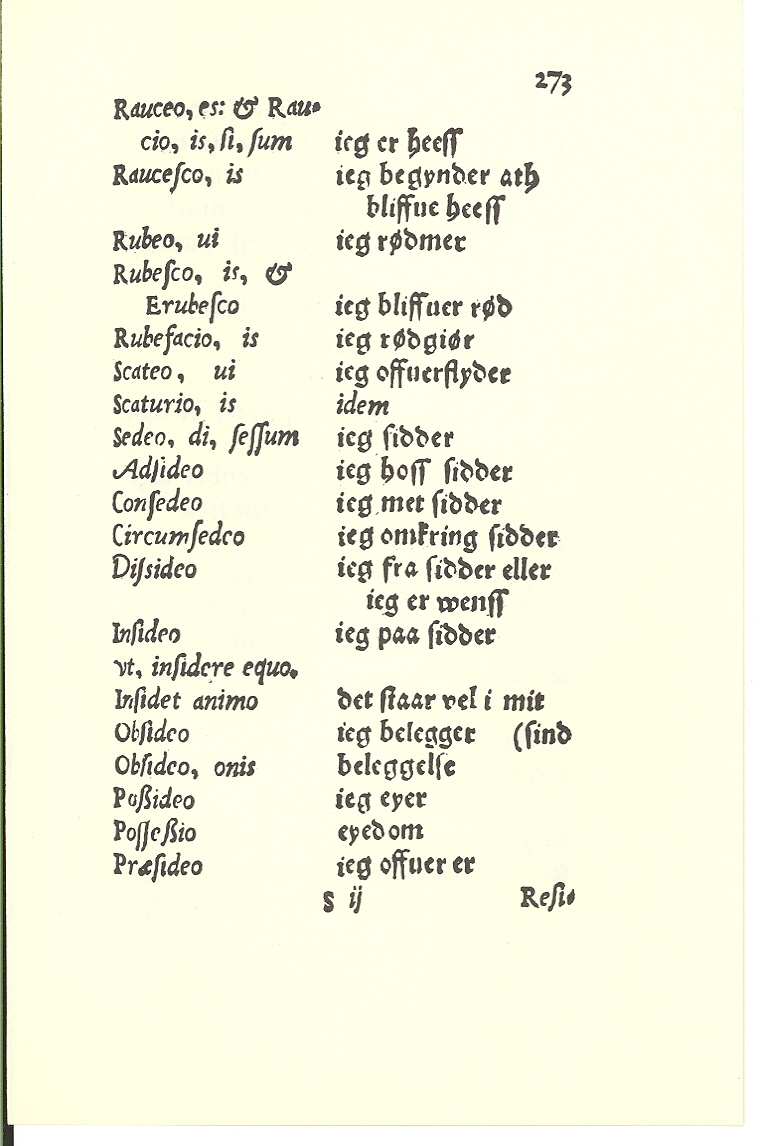 273
Rauceo, es: & Rau-
cio, is, ſi, ſum ieg er heeſſ
Rauceſco, is ieg begynder ath
bliffue heeſſ
Rubeo, ui ieg rødmer
Rubeſco, is, &
Erubeſco ieg bliffuer rød
Rubefacio, is ieg rødgiør
Scateo, ui ieg offuerflyder
Scaturio, is idem
Sedeo, di, ſeſſum ieg ſidder
Adſideo ieg hoſſ ſidder
Conſedeo ieg met ſidder
Circumſedeo ieg omkring ſidder
Diſsideo ieg fra ſidder eller
ieg er wenſſ
Inſideo ieg paa ſidder
vt, inſidere equo.
Inſidet animo det ſtaar vel i mit
Obſideo ieg belegger (ſind
Obſideo, onis beleggelſe
Poßideo ieg eyer
Poſſeßio eyedom
Præſideo ieg offuer er
S ij Reſi-